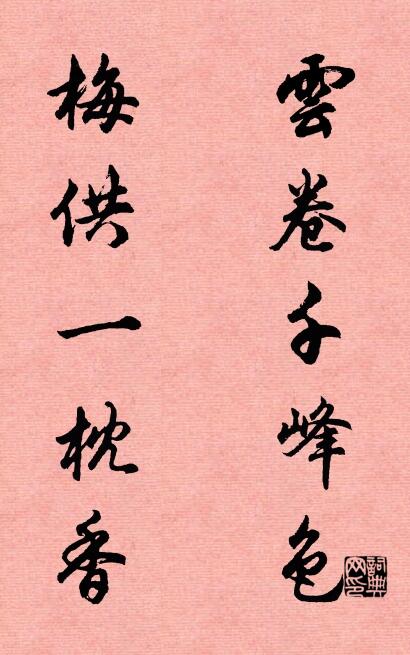 雲卷千峰色
梅供一枕香
詞典網印